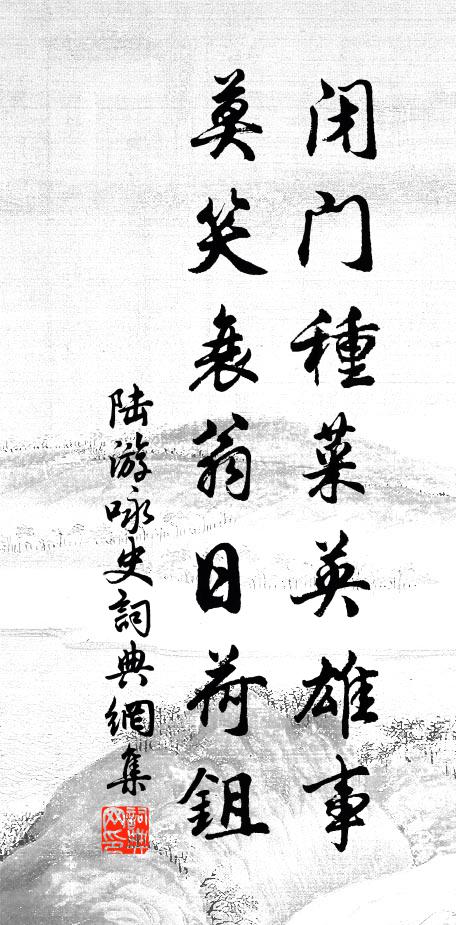 闭门種菜英雄事
莫笑衰翁日荷鉏
陆游咏史詞典網集